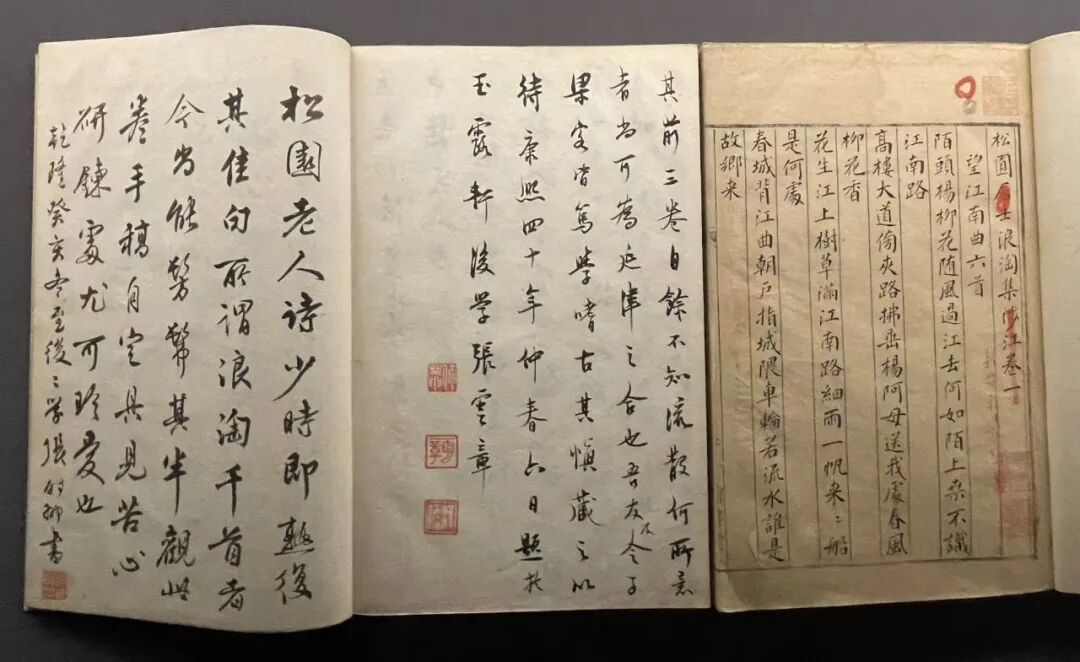 松圓士浪淘集涉江卷一
望江南曲六首
陌頭楊柳花随風過江去何如陌上桒不識
江南路
高樓大道傍夾路拂垂楊阿母送我處春風
柳花香
花生江上樹草滿江南路細雨一帆来〻船
是何處
春城背江曲朝戶指城隈車輪若流水誰是
故鄉来
其前三卷自餘不知流散何所意
者尚可為延津之合也吾友令子
梁客皆篤學嗜古其慎藏之以
待康熙四十年仲春六日題於
玉露軒後學張雲章
松圓老人詩少時即熟復
其佳句所謂浪淘千首者
今尚能髣髴其半觀此
卷手稿自定具見苦心
研鍊處尤可珍愛也
乾隆癸亥冬至後〻學張鵬翀書